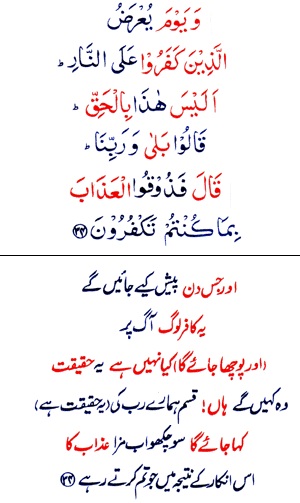 وَيَوْمَ يُعْرَضُ
الَّذِيْنَ كَفَرُوْا عَلَى النَّارِ ؕ
اَلَيْسَ هٰذَا بِالْحَقِّ ؕ
قَالُوْا بَلٰى وَرَبِّنَا ؕ
قَالَ فَذُوْقُوا الْعَذَابَ
بِمَا كُنْتُمْ تَكْفُرُوْنَ ﴿۳۴﴾
اور جس دن پیش کیے جائیں گے
یہ کافر لوگ آگ پر
(اور پوچھا جائے گا) کیا نہیں ہے یہ حقیقت
وہ کہیں گے ہاں! قسم ہمارے رب کی (یہ حقیقت ہے)
کہا جائے گا سو چکھو اب مزا عذاب کا
اس انکار کے نتیجہ میں جو تم کرتے رہے ﴿۳۴﴾